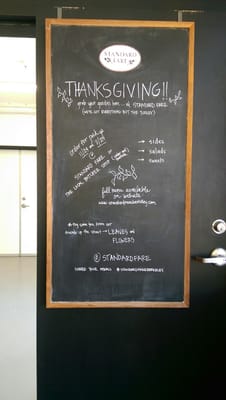 STANDARD
FARE
THANKSGIVING!!
grab your goodies here... @ STANDARD FARE
(we've got everything but the turkey)
order for pickup
11/24 and 11/25
@
STANDARD FARE or
THE LOCAL BUTCHER SHOP
→ sides
→ salads
→ sweets
full menu available
on website
friends down the street → LEAVES and
FLOWERS
@ STANDARDFARE
SHARE YOUR MEALS #STANDARDFAREBERKELEY